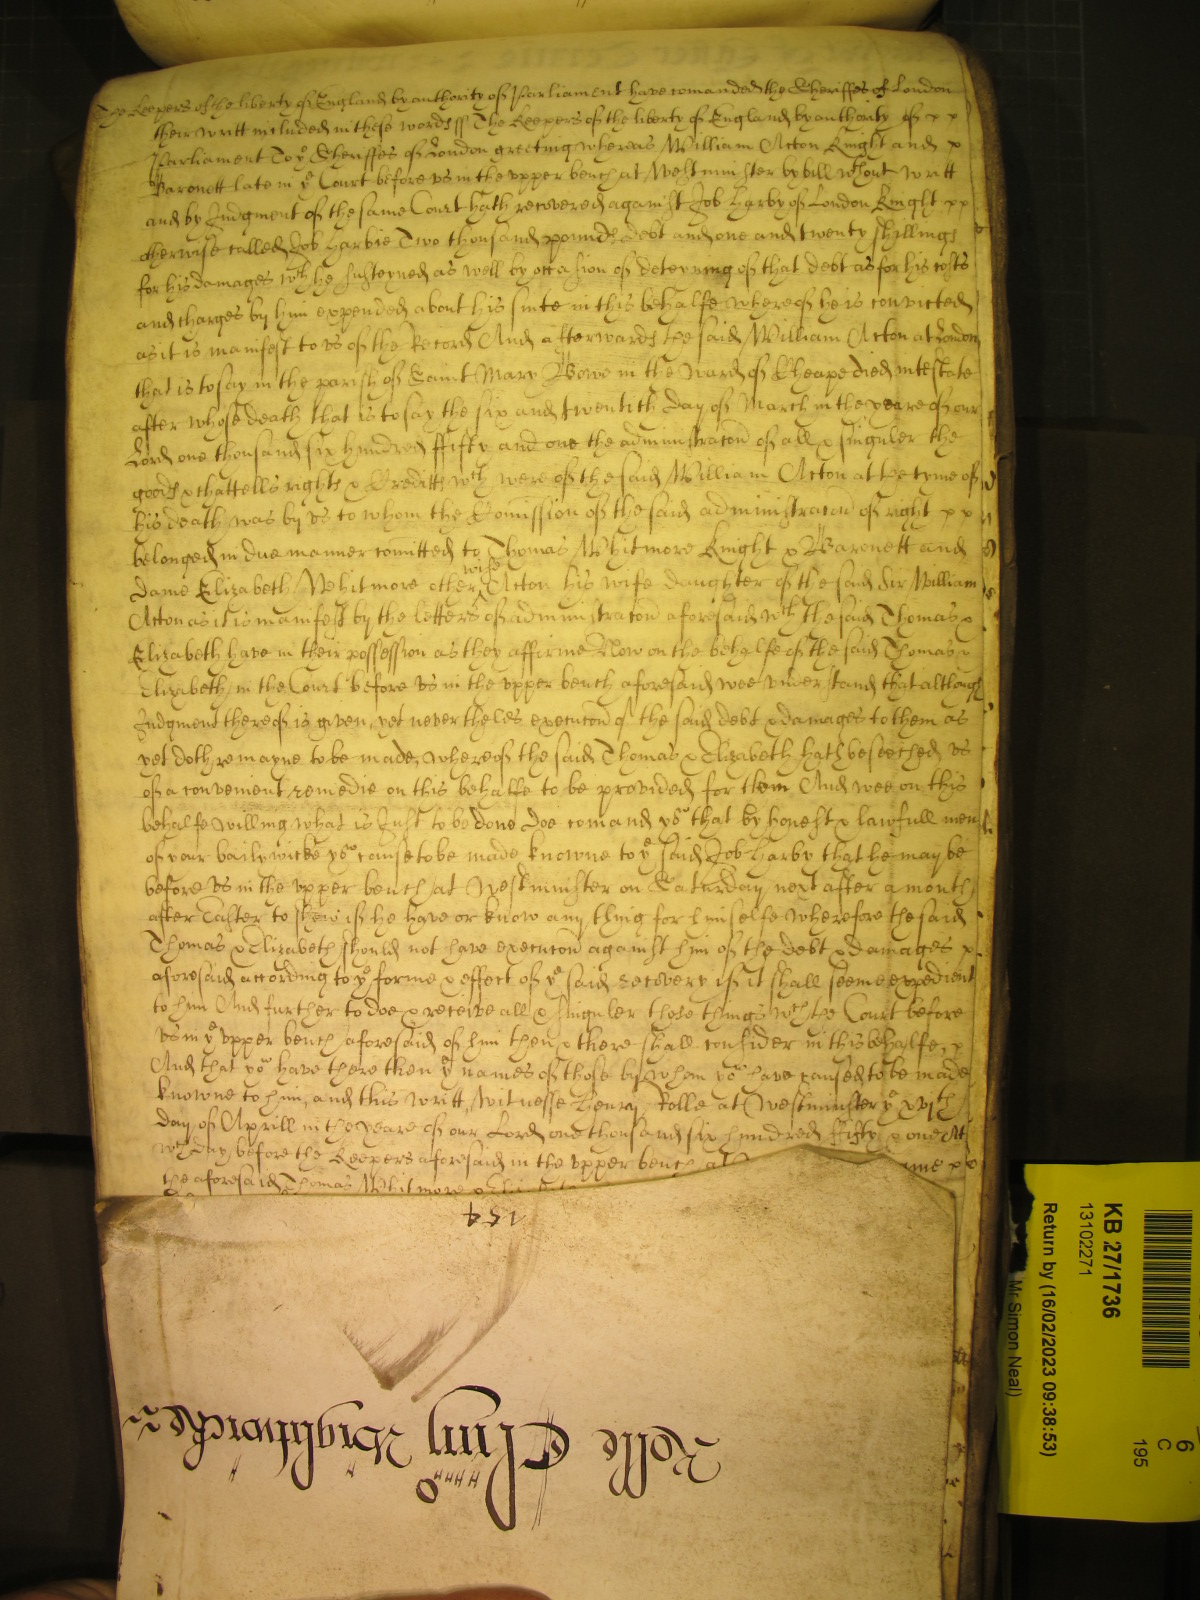 The Keepers of the liberty of England by authority of Parliament have comanded the Sheriffes of London
their writt included in these words ss The Keepers of the liberty of England by authority of x x
Parliament To ye Sheriffes of London greeting whereas William Acton Knight and x
Baronett late in ye Court before us in the upper bench at Westminster by bill wthout writt
and by Judgment of the same Court hath recovered against Job Harby of London Knight x x
otherwise called Job Harbie Two thousand pounds debt and one and twenty shillings
for his damages wch he susteyned as well by occasion of deteyning of that debt as for his costs
and charges by him expended about his suite in this behalfe whereof he is convicted
as it is manifest to us of the Record And afterwards the said William Acton at London
that is to say in the parish of Saint Mary Bowe in the Ward of Cheape died intestate
after whose death that is to say the six and twentith day of March in the yeare of our
Lord one thousand six hundred ffifty and one the administracon of all & singuler the
goods & chattells rights & Creditts wch were of the said William Acton at the tyme of
his death was by us to whom the Comission of the said administracon of right x x
belonged in due manner comitted to Thomas Whitmore Knight & Baronett and
dame Elizabeth Whitmore otherwise Acton his wife daughter of the said Sir William
Acton as it is manifest by the letters of administracon aforesaid wch the said Thomas &
Elizabeth have in their possession as they affirme Now on the behalfe of the said Thomas &
Elizabeth in the Court before us in the upper bench aforesaid wee understand that although
Judgment thereof is given, yet neverthelesse execucon of the said debt & damages to them as
yet doth remayne to be made, whereof the said Thomas & Elizabeth hath beseeched us
of a convenient remedie on this behalfe to be provided for them And wee on this
behalfe willing what is Just to be done doe comand you that by honest & lawfull men
of your bailywicke you cause to be made knowne to ye said Job Harby that he may be
before us in the upper bench at Westminster on Saturday next after a month
after Easter to shew if he have or know any thing for himselfe wherefore the said
Thomas & Elizabeth should not have execucon against him of the debt & damages x
aforesaid according to ye forme & effect of ye said recovery if it shall seeme expedient
to him And further to doe & receive all & singuler those things wch the Court before
us in ye upper bench aforesaid of him then & there shall consider in this behalfe, x
And that you have there then ye names of those by whom you have caused to be made
knowne to him, and this writt, witnesse Henry Rolle at Westminster ye xvith
day of Aprill in the yeare of our Lord one thousand six hundred ffifty & one Att
wch day before the Keepers aforesaid in the upper bench at
the aforesaid Thomas Whitmore &
154
Rolle
KB 27/1736
13102271
Return by (16/02/2023 09:38:53)
Mr Simon Neal)
6
C
195